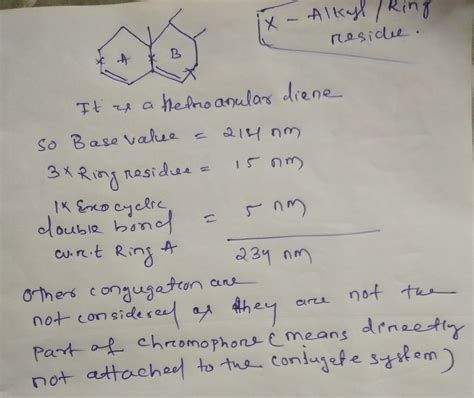 X - Alkyl/Ring
residue.
A
B
It is a hetroanular diene
So Base value = 214 nm
3x Ring residue = 15 nm
1x Exocyclic
double bond = 5 nm
w.r.t Ring A
234 nm
Other congugation are
not considered as they are not the
part of chromophore (means directly
not attached to the conjugate system)